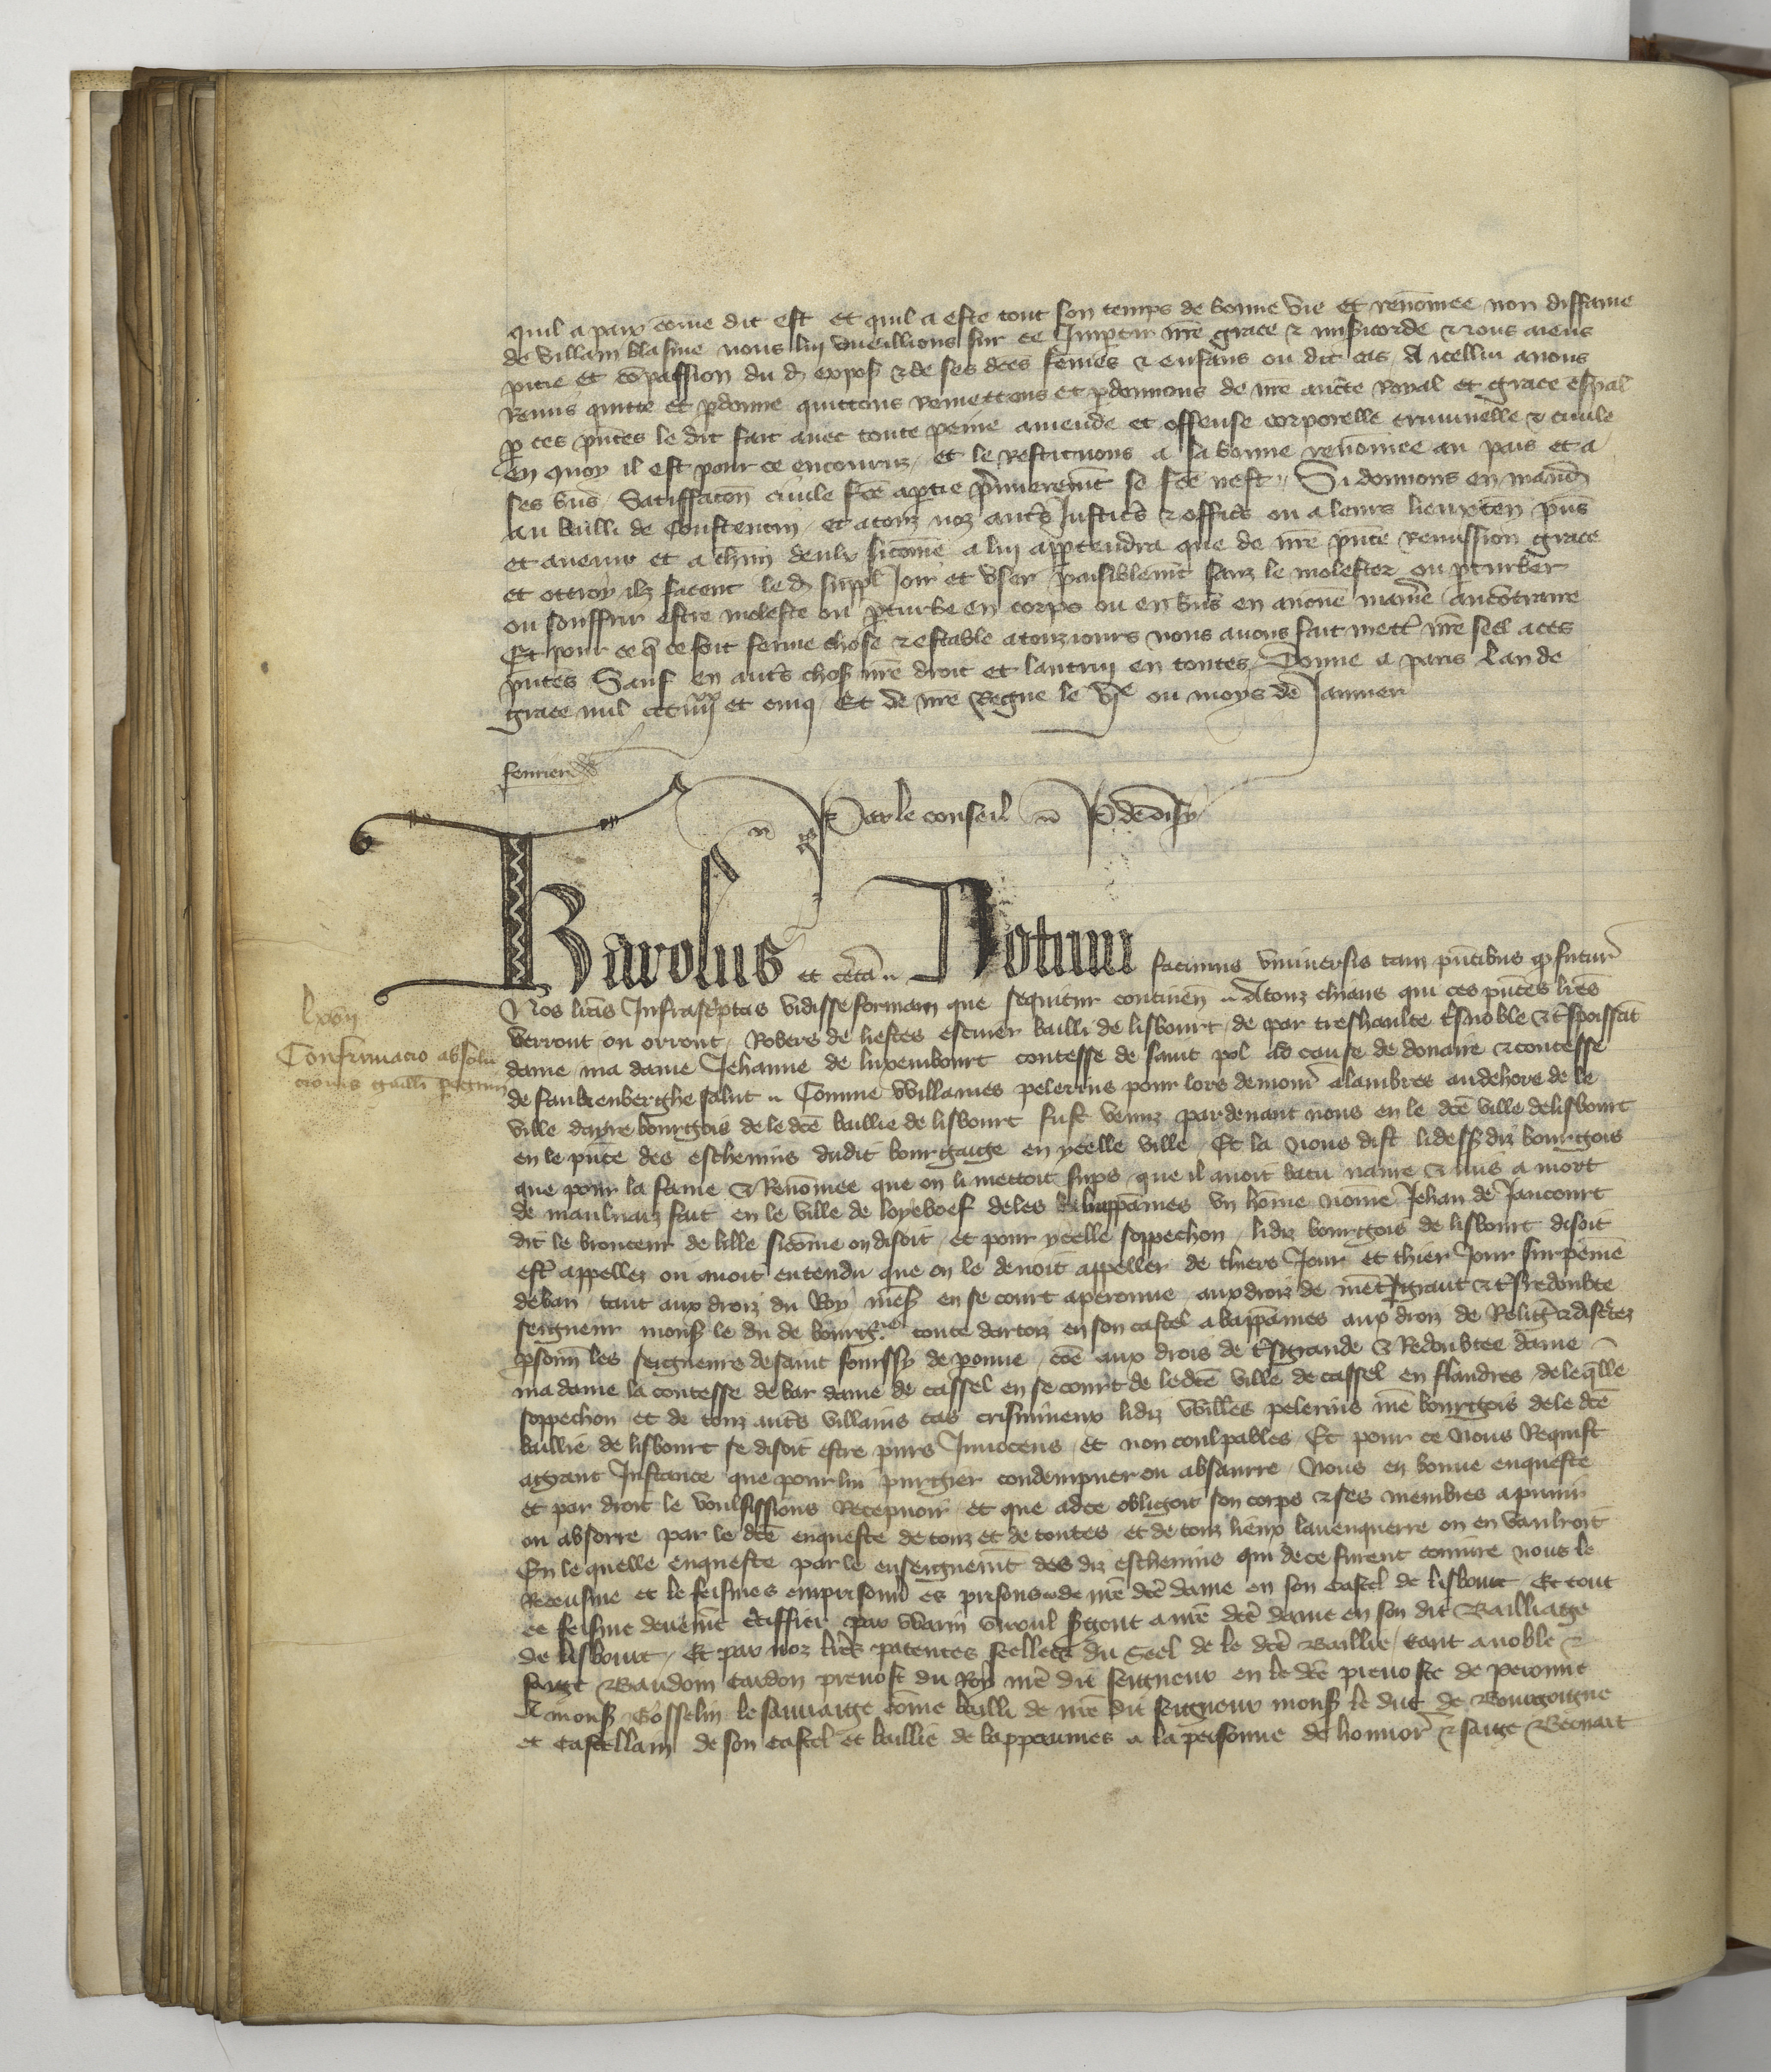 quil a paix cõme dit est et quil a este tout son temps de bonne vie et renõmee non diffame
de villain blasme nous lui vueillions sur ce Impartir nr̃e grace & mis̃icorde & nous aiens
pitie et cõpassion du d̃ expos̃ & de ses dc̃es fẽmes & enfans ou dit cas A icellui avons
Remis quitte et p̱donne quittons remettons et p̱donnons de nr̃e auct̃e Royal et grace esp̃al
p̱ ces pñtes le dit fait avec toute peine amende et offense corporelle criminelle & civile
en quoy il est pour ce encouruz et le restituons a sa bonne renõmee au pais et a
ses biñs Satiffacõn civile fc̃e a p̱tie p̃mierem̃t se fc̃e nest Si donnons en mand̃
au bailli de Constentin et a touz noz aut̃s Justic̃s & offic̃s ou a leurs lieuxteñ p̃ns
et avenir et a chũn deulx sicõme a lui app̱tendra que de nr̃e pñte remission grace
et ottroy ilz facent le d̃ suppl̃ Joir et user paisiblem̃t sanz le molester ou p̱turber
ou souffrir estre moleste ou p̱turbe en corps ou en biñs en aucune manie᷑ au cõtraire
Et pour ce q̃ ce soit ferme chose & estable a touziours nous avons fait mett᷑ nr̃e seel a ces
pñtes Sauf en aut̃s chos̃ nr̃e droit et lautruy en toutes Donne a paris Lan de
grace mil ccc iiii xx et cinq Et de nr̃e Regne le vjᵉ ou moys de Janvier
Par le conseil
Karolus et cet̃a Notum facimus universis tam pñtibus q̃ futur᷑
Nos litt̃as Infrasc̃ptas vidisse formam que sequitur contineñ A touz chiaus qui ces pñtes lr̃es
verront ou orront Robers de liestes escuier bailli de lisbourt de par treshaulte t̃snoble & t̃spoissãt
dame ma dame Jehanne de luxembourt contesse de saint pol ad cause de donaire & contesse
lxvij
Confirmacio absolu
cionis Guill̃i p̱egrini
de faukenberghe salut Comme Willames pelerins pour lors demour᷑ a lambres au dehors de le
ville dayre bourgois de le dc̃e baillie de lisbourt fust venuz par devant nous en le dc̃e ville de lisbourt
en le pñce des eschevins dudit bourgaige en ycelle ville Et la nous dist lidess̃ diz bourgois
que pour la fame & Renõmee que on li mettoit sups que il avoit batu navre & mis a mort
de maulvaiz fait en le ville de loyeboef deles bappãmes un hõme nõme Jehan de Jancourt
dit le brouteur de lille sicõme on disoit et pour ycelle soppechon lidiz bourgois de lisbourt disoit
est᷑ appellez ou avoit entendu que on le devoit appeller de thiers Jour et thier Jour sur peine
de ban tant aux droiz du Roy nr̃es̃ en se court a peronne aux droiz de nr̃e t̃sgrant & t̃sredoubte
seigneur mons̃ le du de bourg̃ne conte dartoiz en son castel a bappãmes aux droiz de Relig̃ & disc̃tez
p̱sonñ les seigneurs de saint fourssy de peronne cõe aux drois de t̃sgrande & Redoubtee dame
ma dame la contesse de bar dame de cassel en se court de le dc̃e ville de cassel en flandres de leq̃lle
soppechon et de touz aut̃s villains cas crisimineux lidiz Will̃es pelerins nr̃e bourgois de le dc̃e
baillie de lisbourt se disoit estre purs Innocens et non coulpables Et pour ce nous Requist
a grant Instance que pour lui purgier condempner ou absaurre Nous en bonne enqueste
et par droit le voulsissions Recepvoir et que ad ce obligoit son corps & ses membres a punir
ou absorre par le dc̃e enqueste de touz et de toutes et de touz lieux lau enquerre on en vaulroit
En lequelle enqueste par le enseignem̃t des diz eschevins qui de ce furent conjure nous le
Receusme et le feismes emprisonñ es prisons de nr̃e dc̃e dame en son castel de lisbourt Et tout
ce feisme deuem̃t c̃tiffier par Warin s̃gent a nr̃e dc̃e dame en son dit Bailliage
de lisbourt Et par noz lr̃es patentes seellees du Seel de le dc̃e Baillie tant a noble &
saige Baudoin Cardon prevost du Roy nr̃e dit seigneur en le dc̃e prevoste de peronne
A mons̃ Gosselin le sauvaige cõme bailli de nr̃e dit seigneur mons̃ le duc de Bourgoigne
et Castellain de son Castel et baillie de bappaumes a la personne de honnor᷑ & saige Bernart